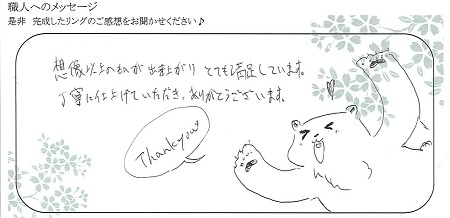 職人へのメッセージ
是非 完成したリングのご感想をお聞かせください♪
想像以上のものが出来上がり とても満足しています。
丁寧に仕上げていただき、ありがとうございます。
Thank you